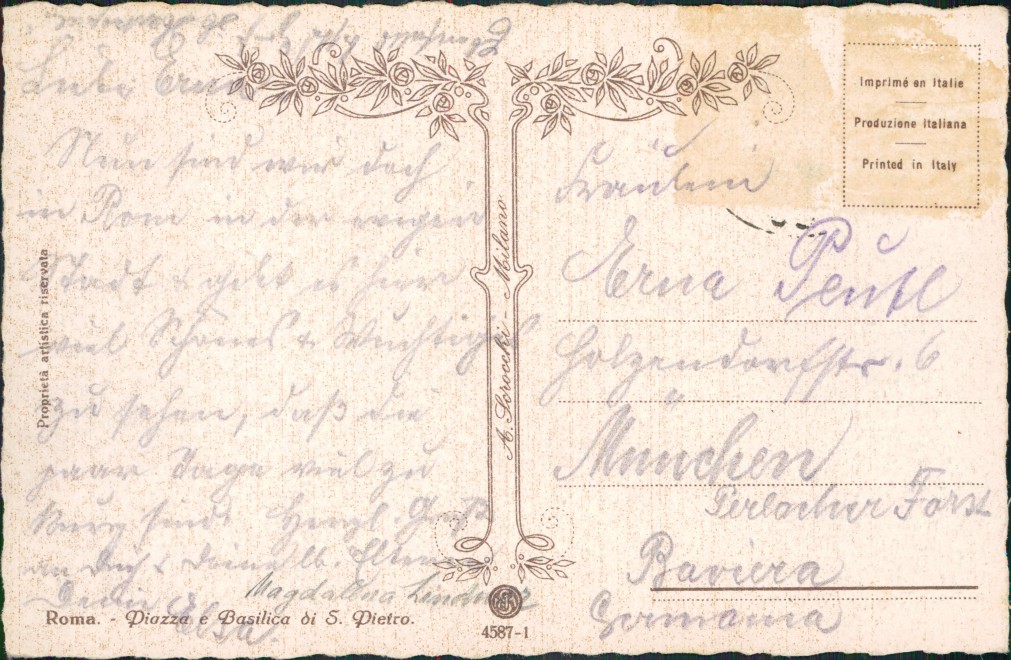 Liebe Erna
Nun sind wir doch
in Rom in der ewigen
Stadt & gibt es hier
viel Schönes & Wuchtiges
zu sehen, daß die
paar Tage viel zu
kurz sind. Herzl. Grüße
an Dich & Deine lb. Eltern
Deine Elsa
Magdalena Lindner
Roma. - Piazza e Basilica di S. Pietro.
Proprietà artistica riservata
A. Scrocchi - Milano
4587-1
Imprimé en Italie
Produzione Italiana
Printed in Italy
Fräulein
Erna
Holzendorffstr. 6
München
Perlacher Forst
Baviera
Germania